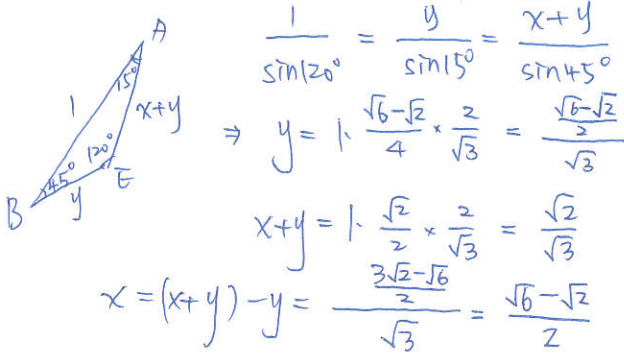 A
15°
1
x+y
120°
E
45°
y
B
1/sin120° = y/sin15° = x+y/sin45°
⇒ y = 1· √6-√2/4 × 2/√3 = (√6-√2/2)/√3
x+y = 1· √2/2 × 2/√3 = √2/√3
x = (x+y) - y = (3√2-√6/2)/√3 = √6-√2/2